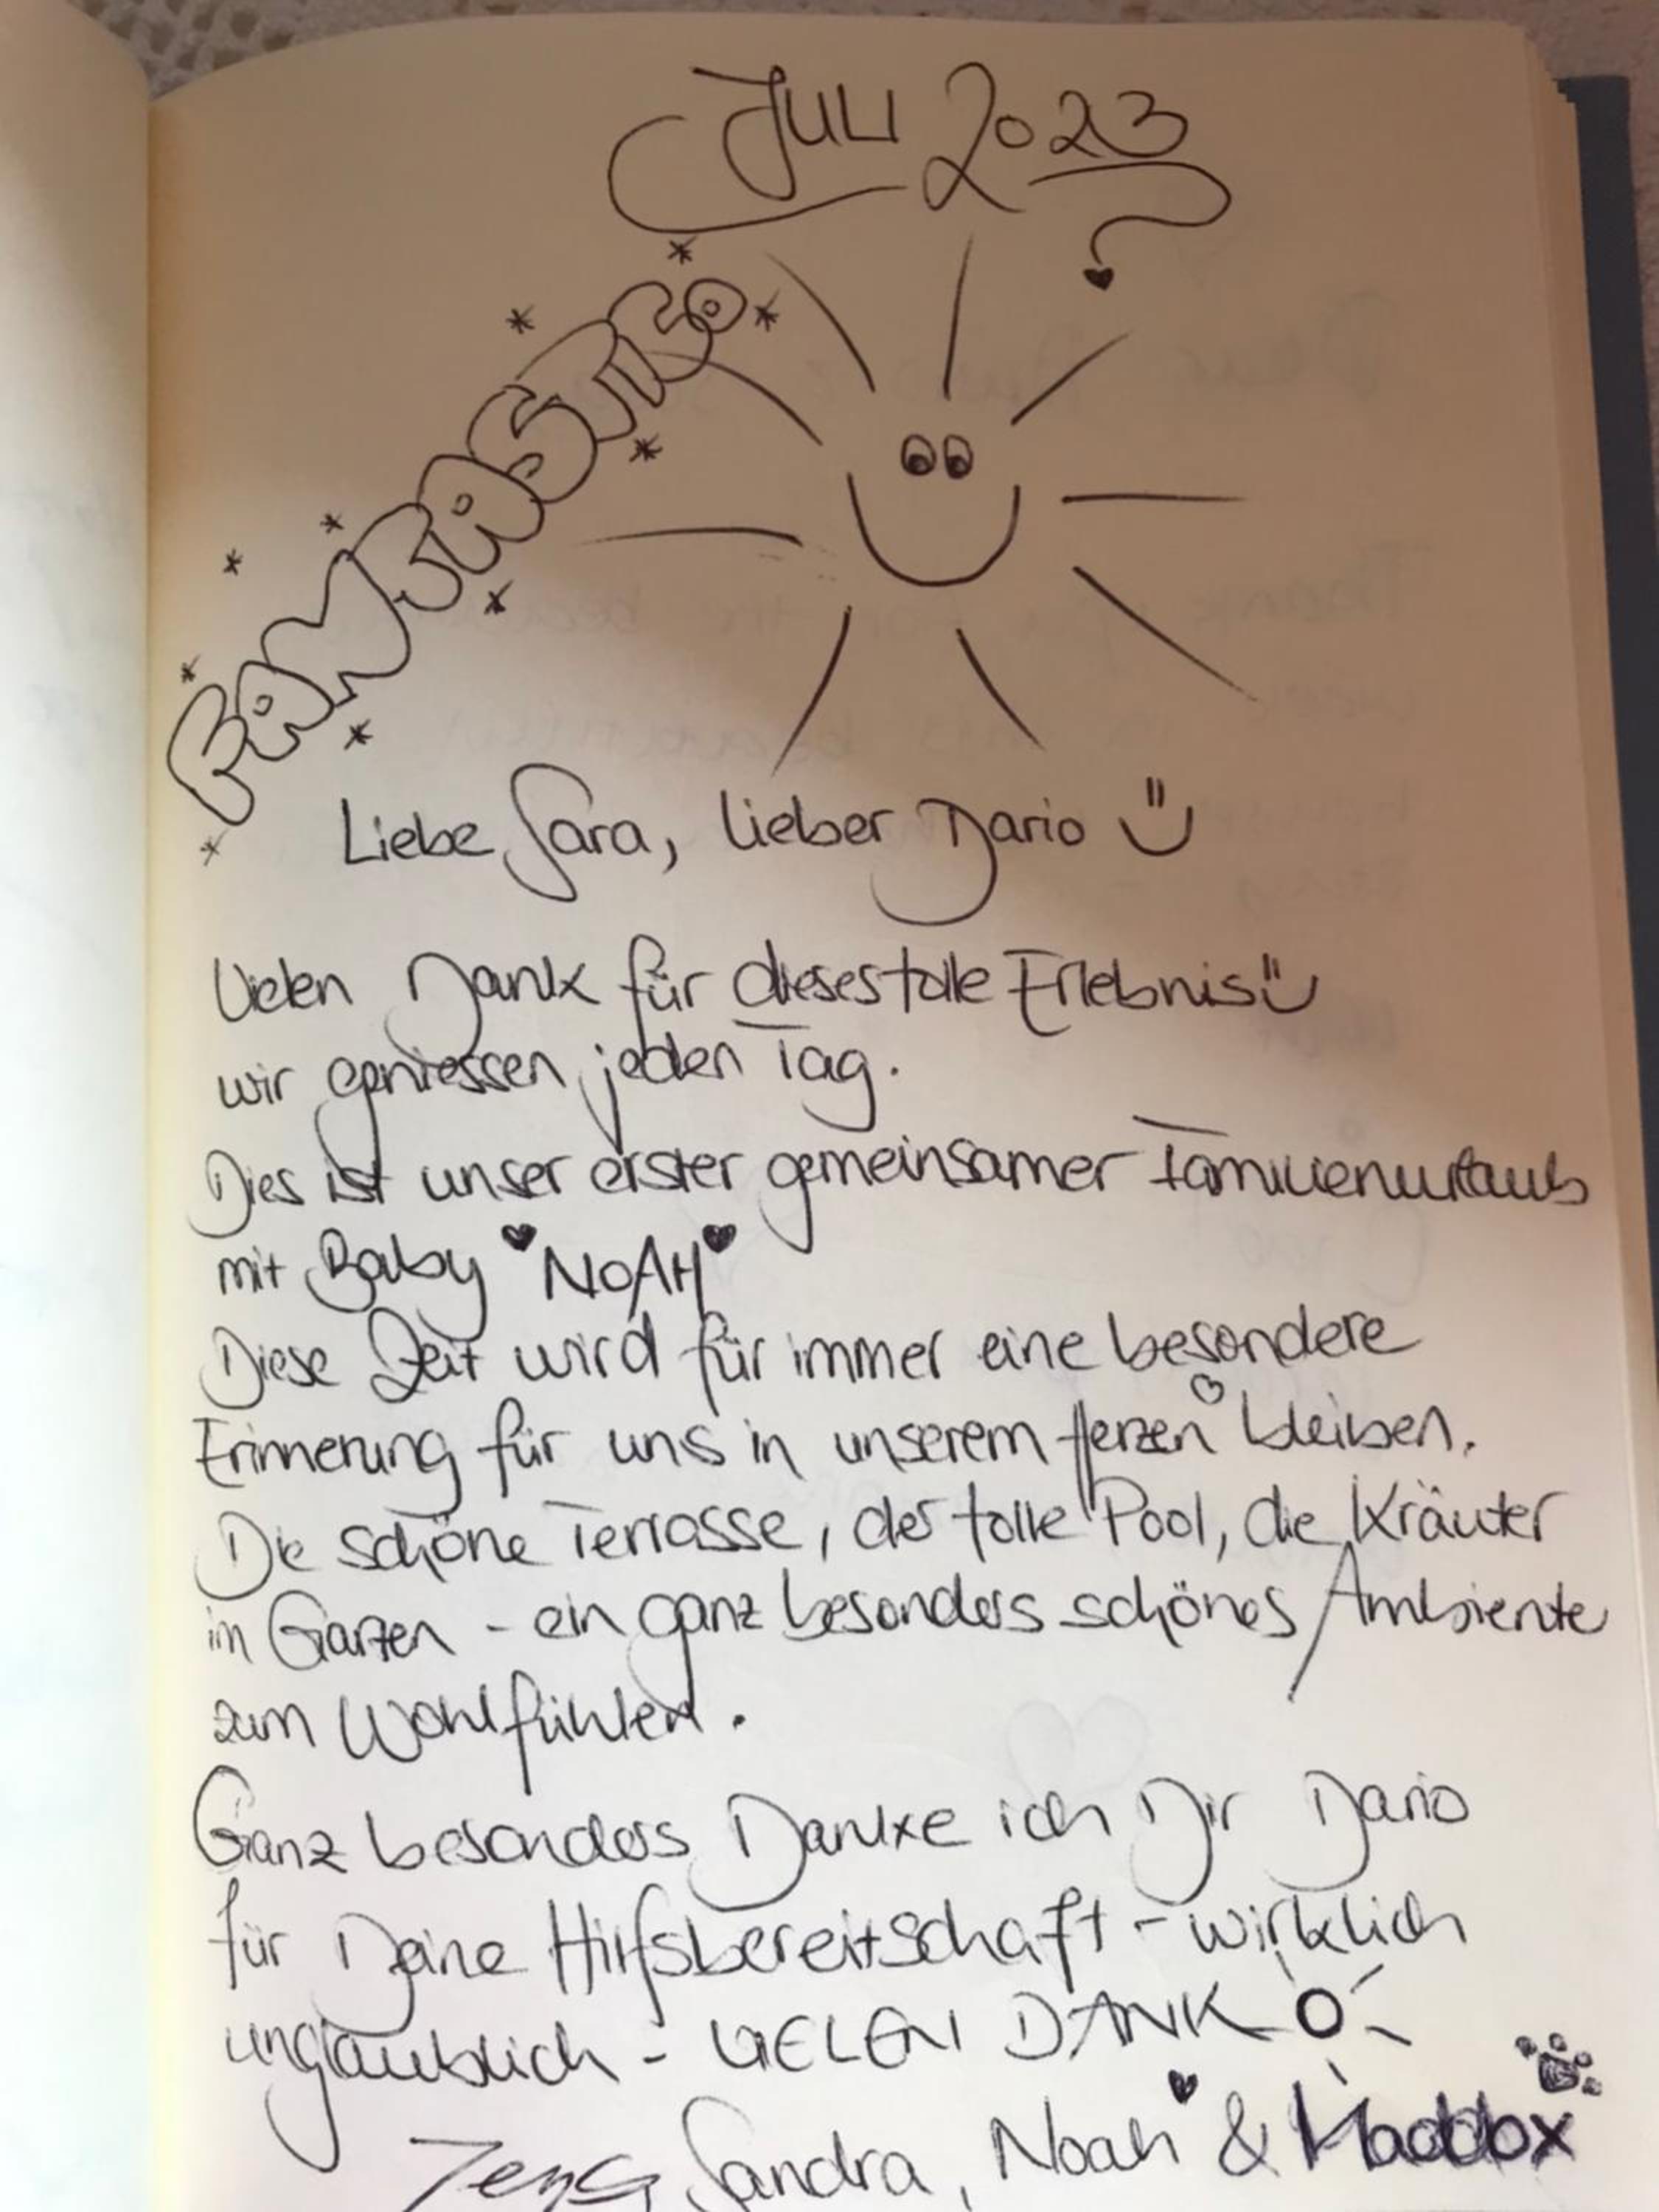 Juli 2023
FANTASTICO
Liebe Sara, lieber Dario
Vielen Dank für dieses tolle Erlebnis
wir geniessen jeden Tag.
Dies ist unser erster gemeinsamer Familienurlaub
mit Baby "NOAH"
Diese Zeit wird für immer eine besondere
Erinnerung für uns in unserem Herzen bleiben.
Die schöne Terrasse, der tolle Pool, die Kräuter
im Garten - ein ganz besonders schönes Ambiente
zum Wohlfühlen.
Ganz besonders Danke ich Dir Dario
für Deine Hilfsbereitschaft - wirklich
unglaublich - VIELEN DANK
Jens, Sandra, Noah & Maddox